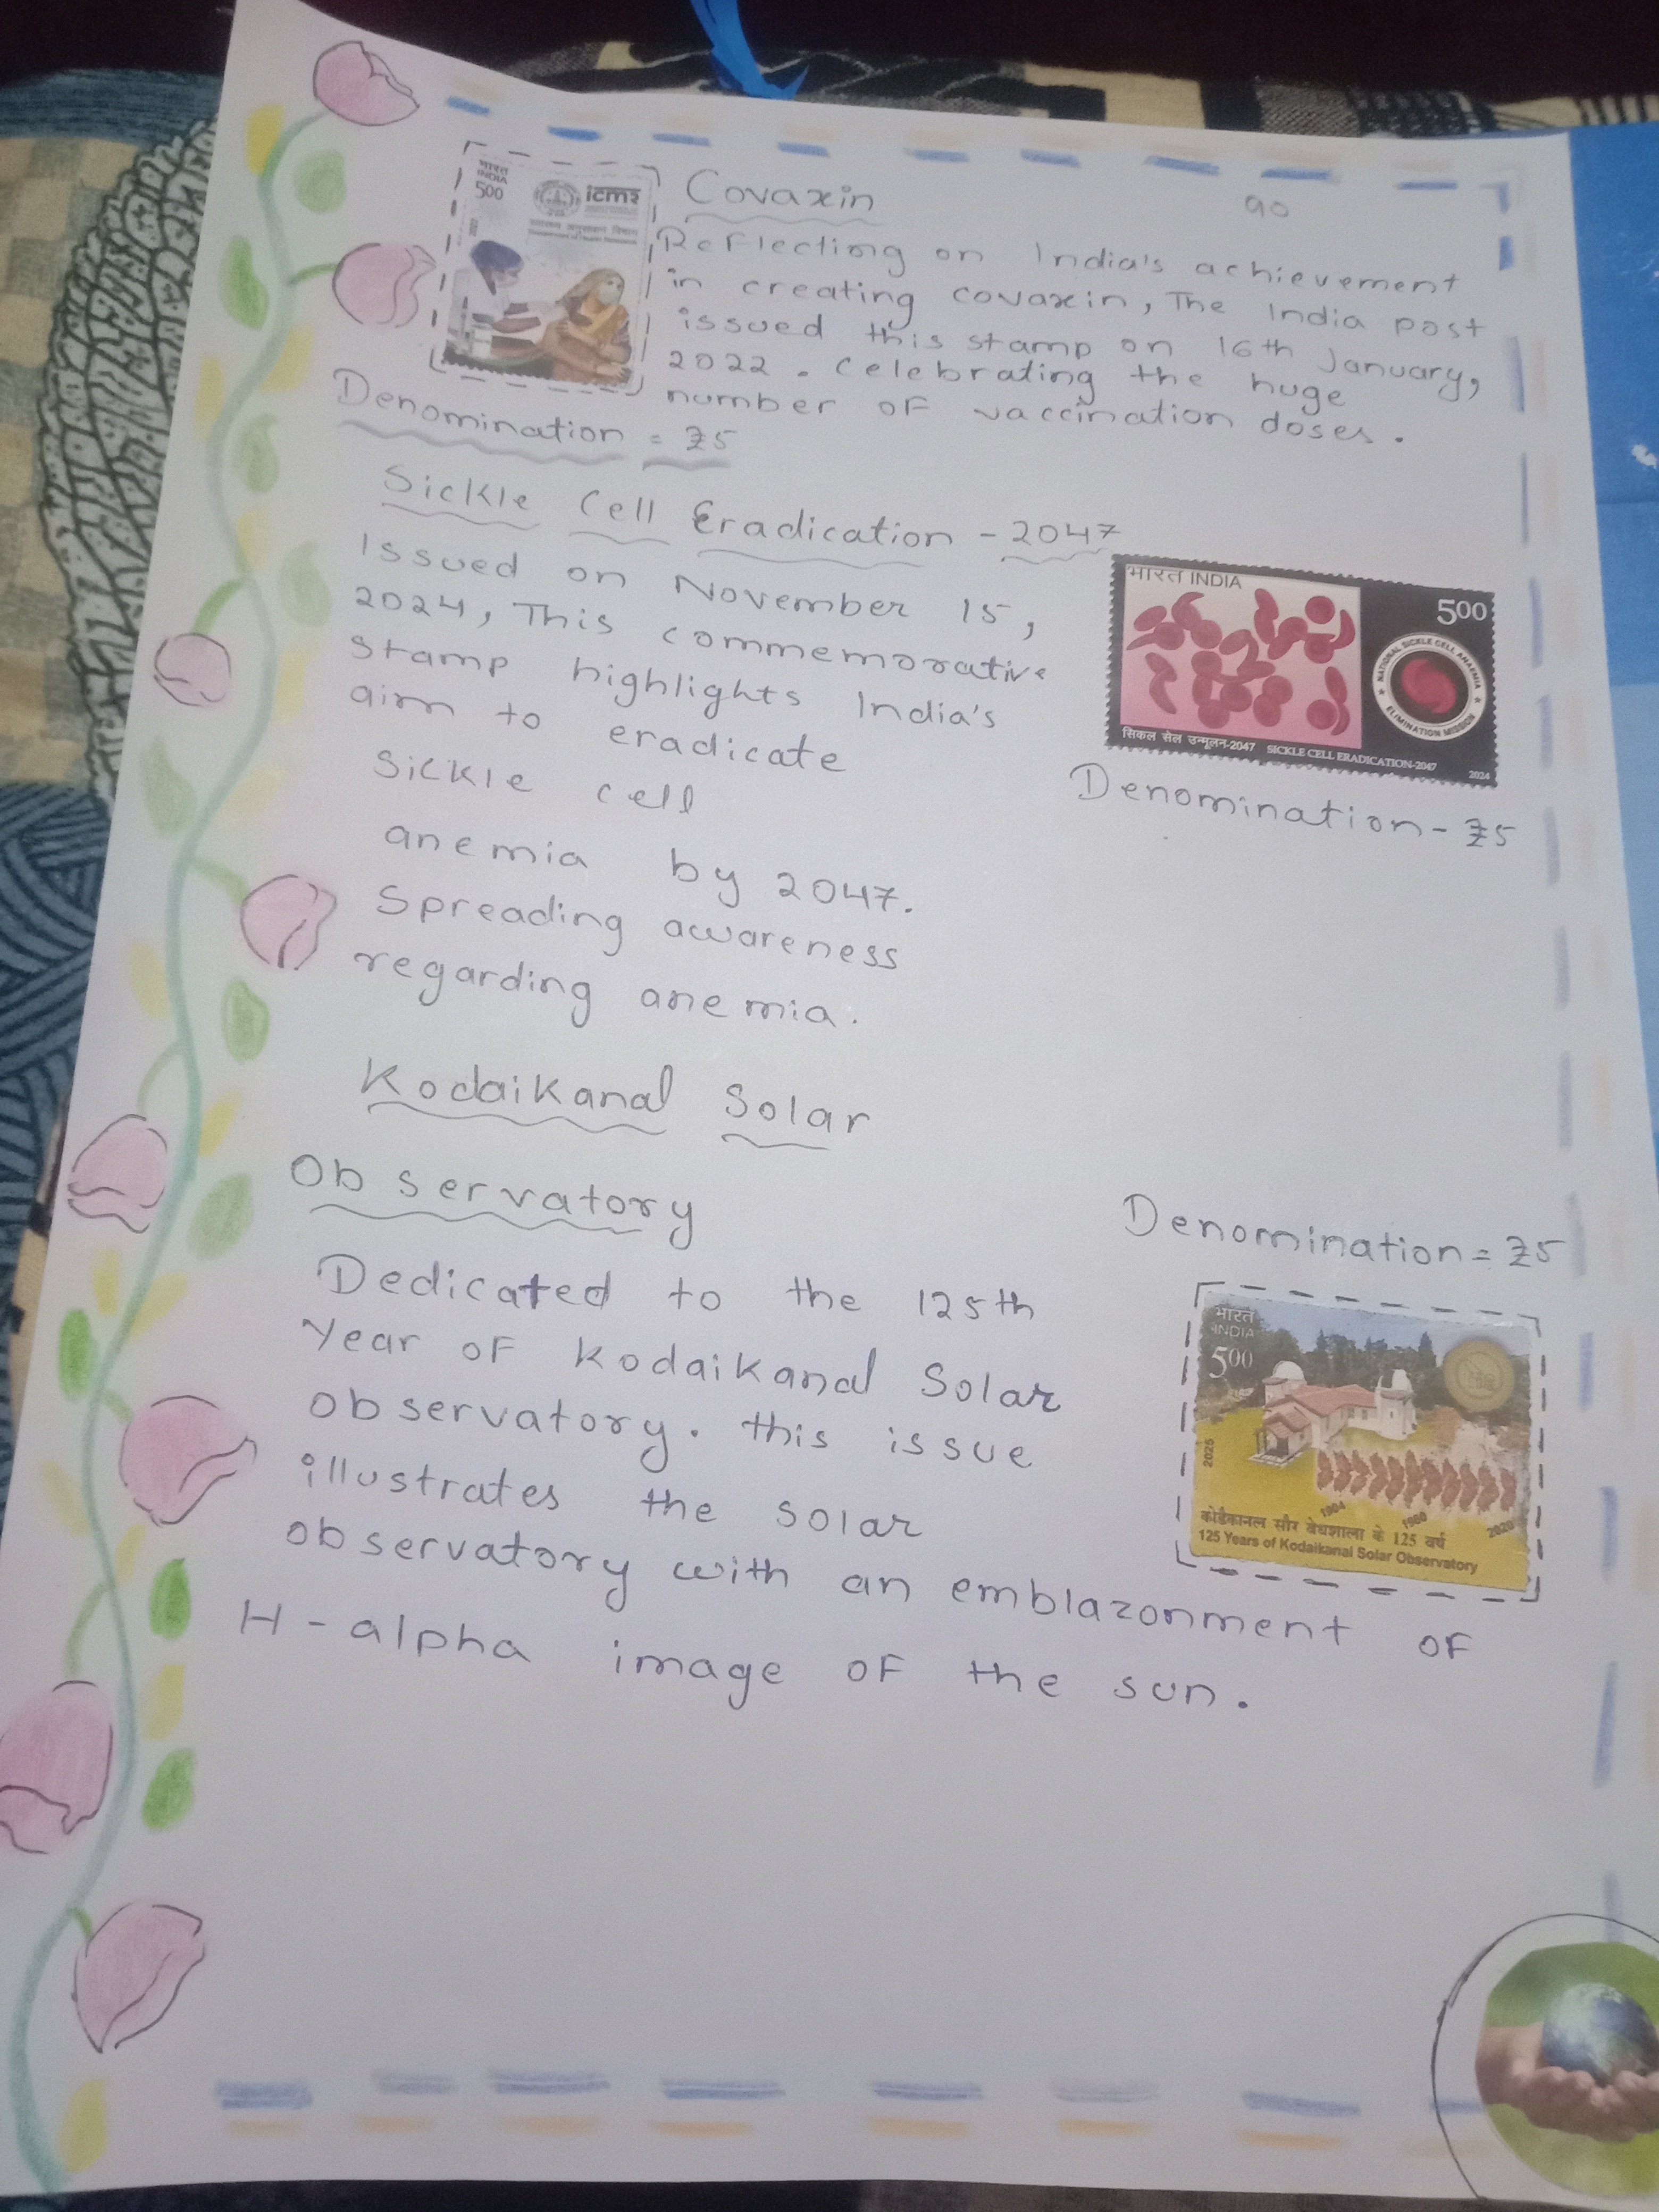 भारत
INDIA
500
icmr
Covaxin
90
Reflecting on India's achievement
in creating covaxin, The India post
issued this stamp on 16th January,
2022. celebrating the huge
number of vaccination doses.
Denomination = ₹5
Sickle Cell Eradication - 2047
Issued on November 15,
2024, This commemorative
stamp highlights India's
aim to eradicate
sickle cell
anemia by 2047.
Spreading awareness
regarding anemia.
भारत INDIA
500
NATIONAL SICKLE CELL ANAEMIA
ELIMINATION MISSION
सिकल सेल उन्मूलन-2047 SICKLE CELL ERADICATION-2047
2024
Denomination - ₹5
Kodaikanal Solar
Observatory
Denomination = ₹5
Dedicated to the 125th
Year of Kodaikanal Solar
observatory. this issue
illustrates the solar
observatory with an emblazonment of
H-alpha image of the sun.
भारत
INDIA
500
2025
1904
1960
2020
कोडैकानल सौर वेधशाला के 125 वर्ष
125 Years of Kodaikanal Solar Observatory